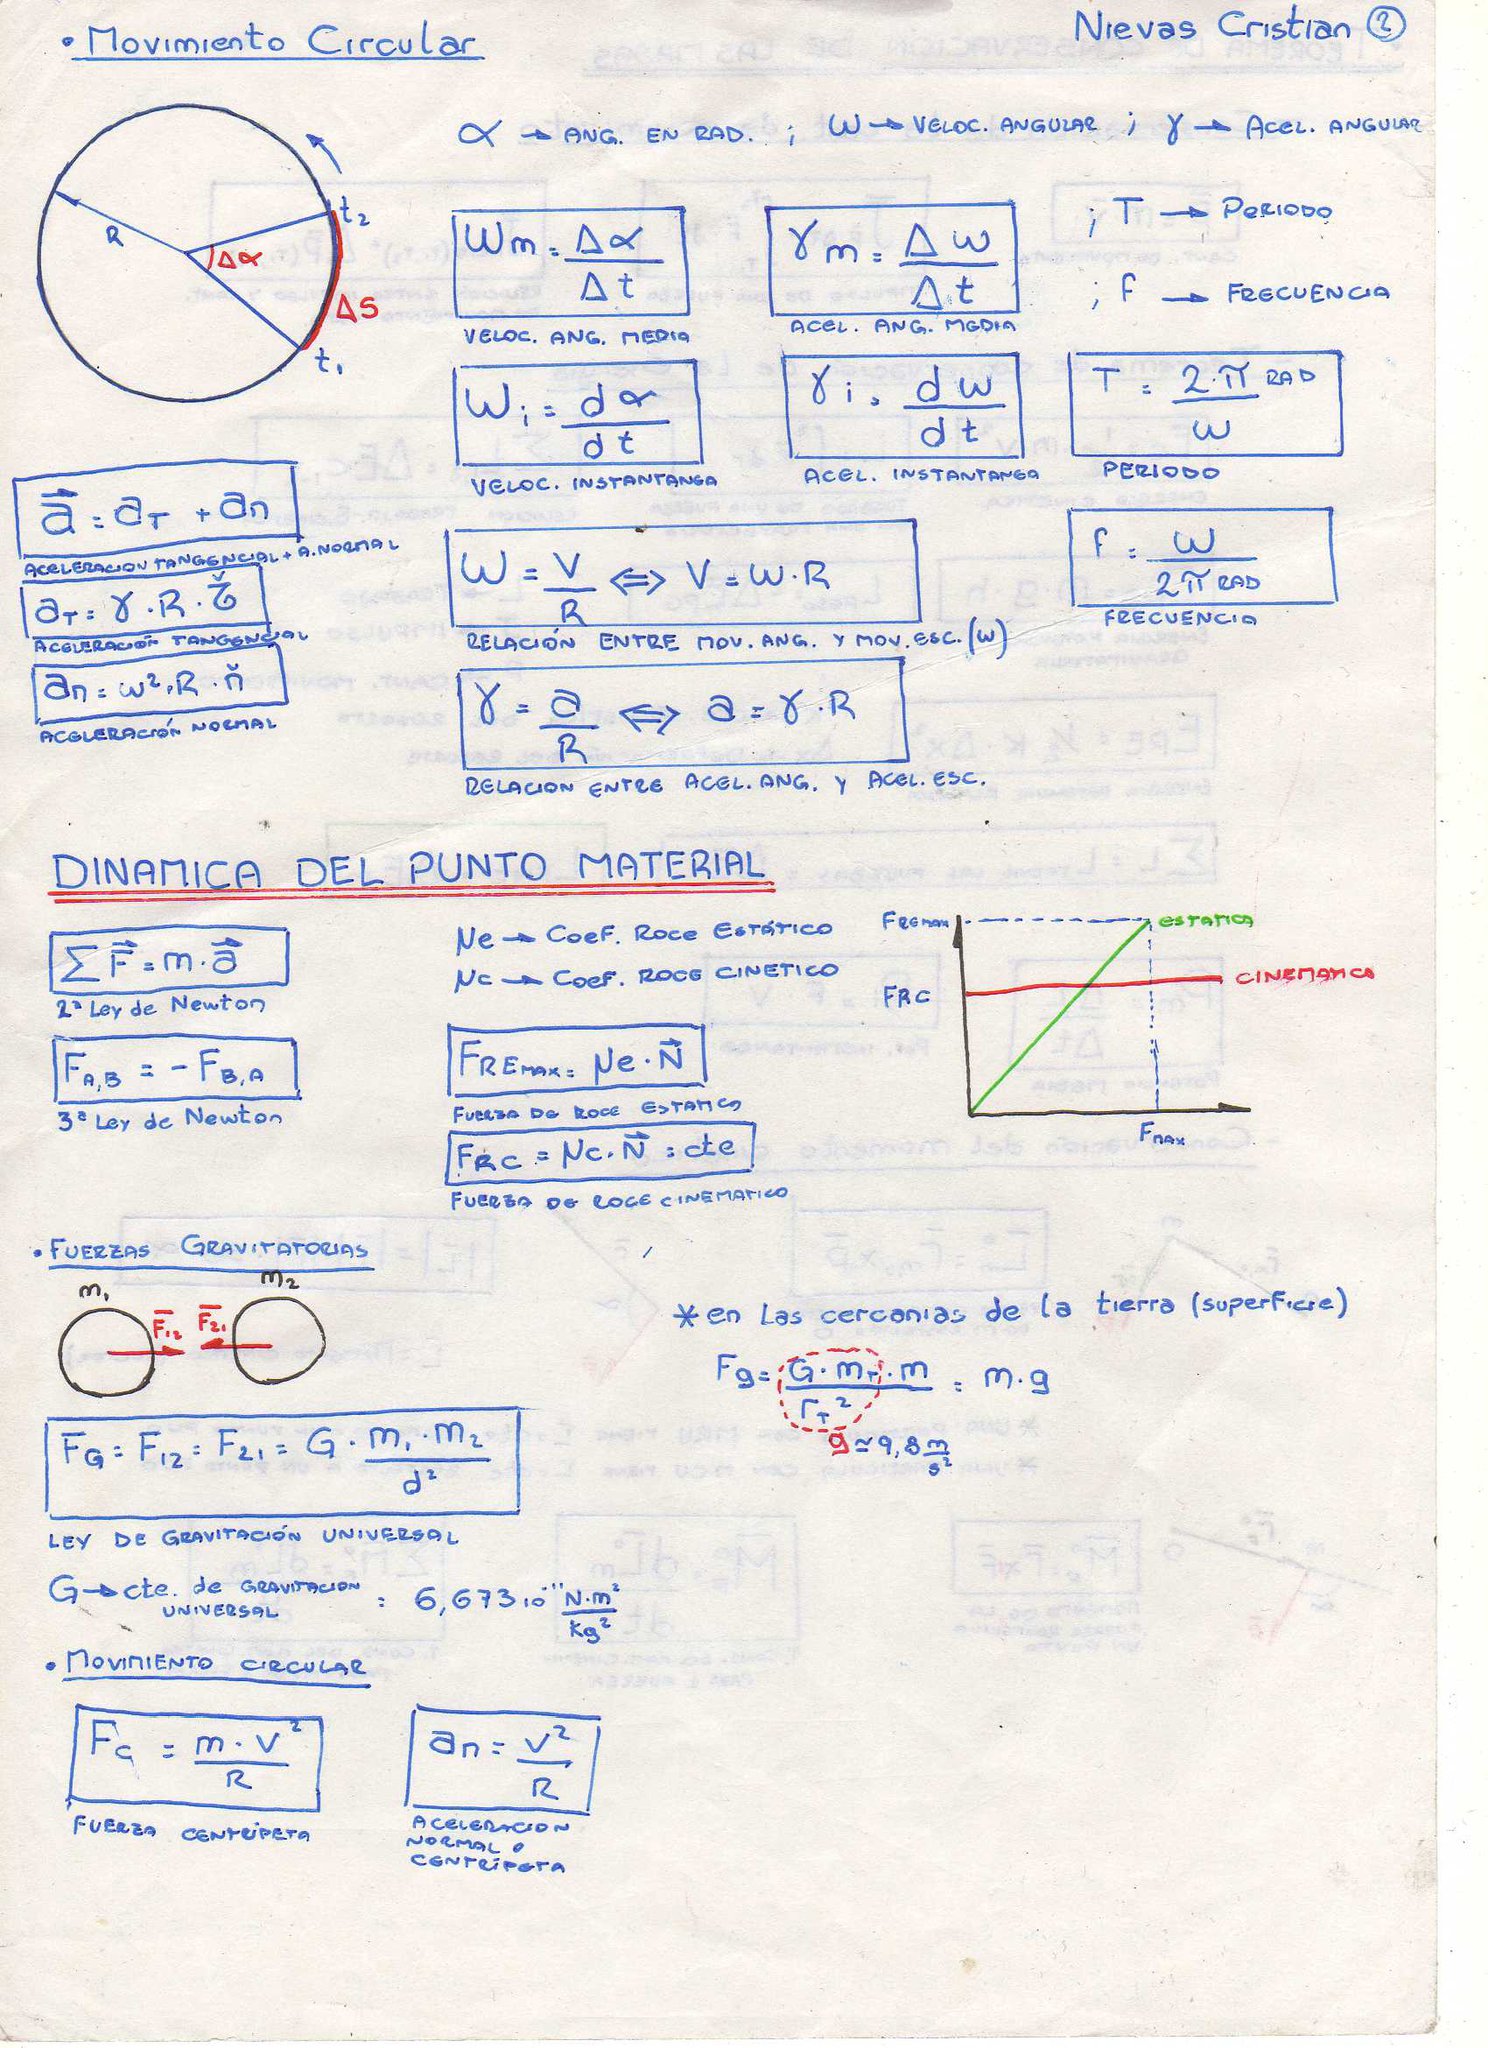 • Movimiento Circular
Nievas Cristian ②
α → ANG. EN RAD. ; ω → VELOC. ANGULAR ; γ → ACEL. ANGULAR
; T → PERIODO
; f → FRECUENCIA
R
Δα
ΔS
t₂
t₁
ωm = Δα / Δt
VELOC. ANG. MEDIA
γm = Δω / Δt
ACEL. ANG. MEDIA
ωi = dα / dt
VELOC. INSTANTANEA
γi = dω / dt
ACEL. INSTANTANEA
T = 2·π RAD / ω
PERIODO
a⃗ = aT + an
ACELERACION TANGENCIAL + A. NORMAL
aT = γ · R · τ̌
ACELERACIÓN TANGENCIAL
an = ω² · R · ň
ACELERACIÓN NORMAL
ω = V / R ⇔ V = ω·R
RELACIÓN ENTRE MOV. ANG. Y MOV. ESC. (ω)
f = ω / 2π RAD
FRECUENCIA
γ = a / R ⇔ a = γ·R
RELACION ENTRE ACEL. ANG. Y ACEL. ESC.
DINAMICA DEL PUNTO MATERIAL
∑ F⃗ = m · a⃗
2ª Ley de Newton
F A,B = − F B,A
3ª Ley de Newton
μe → COEF. ROCE ESTÁTICO
μc → COEF. ROCE CINETICO
FRE MAX = μe · N⃗
FUERZA DE ROCE ESTATICO
FRC = μc · N⃗ = cte
FUERZA DE ROCE CINEMATICO
FREMAX
ESTATICA
CINEMATICA
FRC
FMAX
• FUERZAS GRAVITATORIAS
m₁
m₂
F̅₁₂
F̅₂₁
F̅G = F₁₂ = F₂₁ = G · m₁ · m₂ / d²
LEY DE GRAVITACIÓN UNIVERSAL
G → cte. de GRAVITACION UNIVERSAL = 6,673 10⁻¹¹ N·m² / kg²
* en las cercanias de la tierra (superficie)
Fg = G · mT · m / rT² = m · g
g ≃ 9,8 m / s²
• MOVIMIENTO CIRCULAR
Fc = m · v² / R
FUERZA CENTRÍPETA
an = v² / R
ACELERACION
NORMAL o
CENTRÍPETA